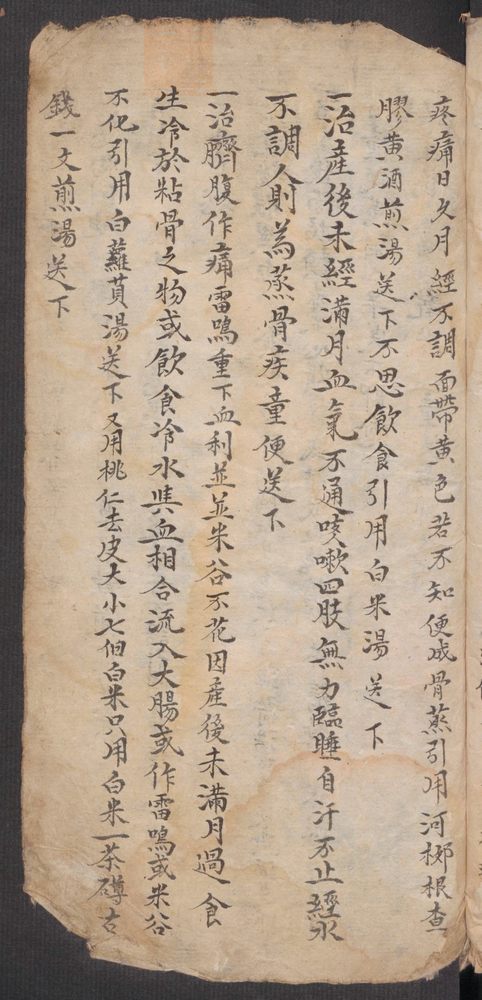 疼痛日久月經不調面帶黃色若不知便成骨蒸引用河梛根查
膠黃酒煎湯送下不思飲食引用白米湯送下
一治產後未經滿月血氣不通咳嗽四肢無力臨睡自汗不止經水
不調人則為蒸骨疾童便送下
一治臍腹作痛雷鳴重下血利並並米谷不花因產後未滿月過食
生冷於粘骨之物或飲食冷水與血相合流入大腸或作雷鳴或米谷
不化引用白蘿蔔湯送下又用桃仁去皮大小七個白米只用白米一茶罇古
錢一文煎湯送下